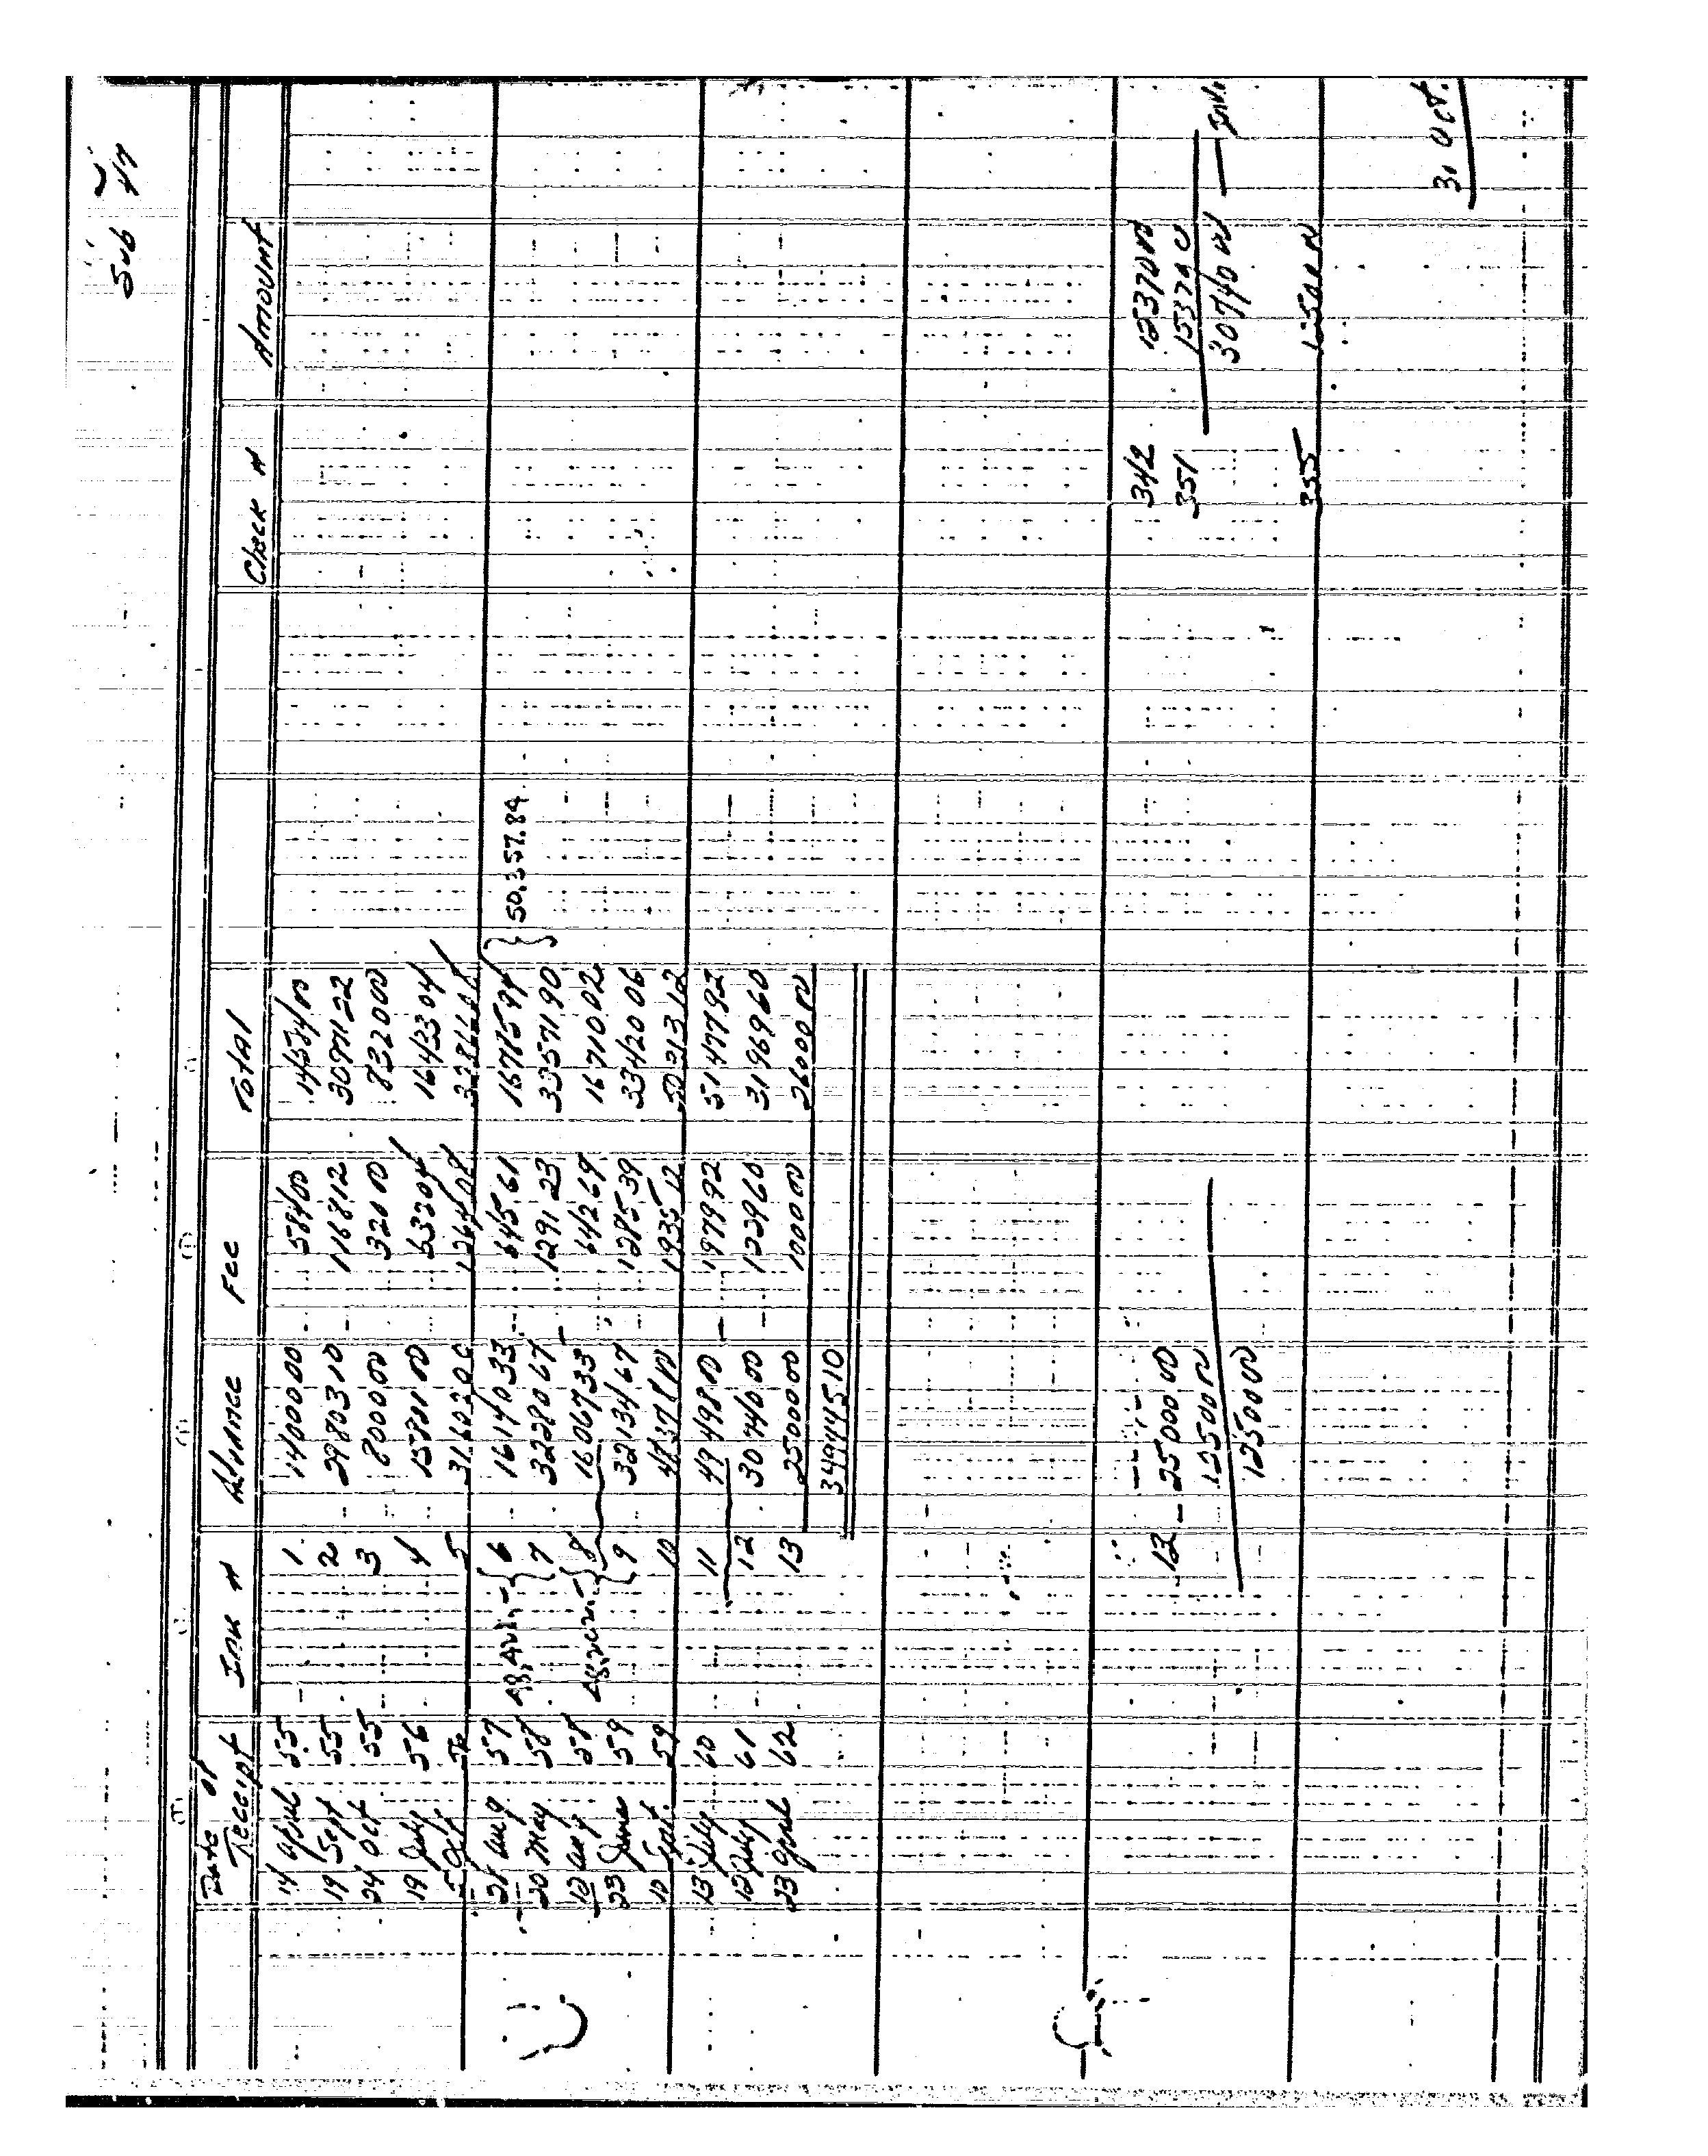 Sub 47
Date of Receipt Inv # Advance Fee Total Check # Amount
14 April 55 1 14000 00 584 00 14584 00
19 Sept 55 2 29803 10 1168 12 30971 22
24 Oct 55 3 8000 00 320 00 8320 00
19 July 56 4 15801 00 632 04 16433 04
5 Oct. 56 5 31602 00 1264 08 32866 08
21 Aug 57 6 16140 33 645 61 16785 94
20 May 58 7 32280 67 1291 23 33571 90
50,357.84
12 Aug 58 8 16067 33 642 69 16710 02
23 June 59 9 32134 67 1285 39 33420 06
10 59 10 48378 00 1935 12 50313 12
13 July 60 11 49498 00 1979 92 51477 92
12 July 61 12 30740 00 1229 60 31969 60
23 62 13 25000 00 1000 00 26000 00
349445 10
342 15370 00
12 - 25000 00 351 15370 00
12500 00 30740 00 — Inv.
12500 00
355 12500 00
31 Oct.